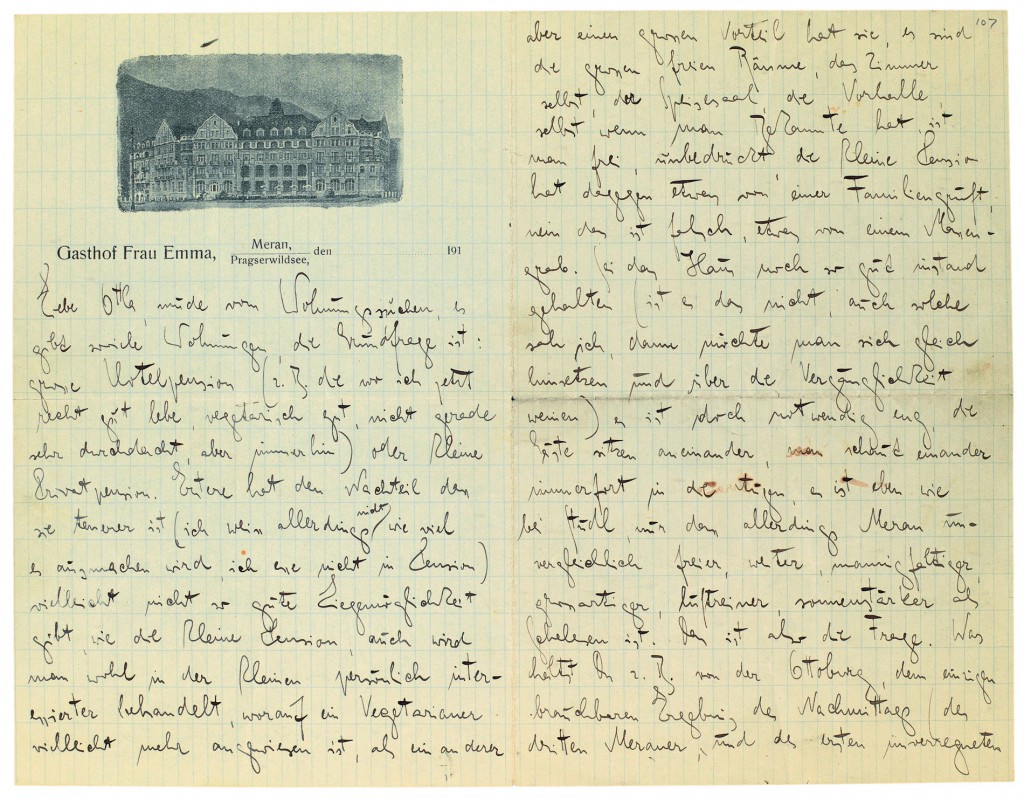 Gasthof Frau Emma, Meran, Pragserwildsee, den 191
Liebe Otla, müde vom Wohnungssuchen, es
gibt soviele Wohnungen, die Grundfrage ist:
grosse Hotelpension (z. B. die wo ich jetzt
recht gut lebe, vegetarisch gut, nicht gerade
sehr durchdacht, aber immerhin) oder kleine
Privatpension. Erstere hat den Nachteil dass
sie teuerer ist (ich weiss allerdings nicht wie viel
es ausmachen wird, ich esse nicht in Pension)
vielleicht nicht so gute Liegemöglichkeit
gibt, wie die kleine Pension, auch wird
man wohl in der kleinen persönlich inter-
essierter behandelt, worauf ein Vegetarianer
vielleicht mehr angewiesen ist, als ein anderer
107
aber einen grossen Vorteil hat sie, es sind
die grossen freien Räume, das Zimmer
selbst, der Speisesaal, die Vorhalle,
selbst wenn man Bekannte hat, ist
man frei, unbedrückt, die kleine Pension
hat dagegen etwas von einer Familiengruft,
nein das ist falsch, etwas von einem Massen-
grab. Sei das Haus noch so gut instand
gehalten (ist es das nicht, auch solche
sah ich, dann möchte man sich gleich
hinsetzen und über die Vergänglichkeit
weinen) es ist doch notwendig eng, die
Gäste sitzen aneinander, man schaut einander
immerfort in die Augen, es ist eben wie
bei Stüdl, nur dass allerdings Meran un-
vergleichlich freier, weiter, mannigfaltiger,
grossartiger, luftreiner, sonnenstärker als
Schelesen ist. Das ist also die Frage. Was
hältst Du z. B. von der Ottoburg, dem einzigen
brauchbaren Ergebnis des Nachmittags (des
dritten Meraner, und des ersten unverregneten